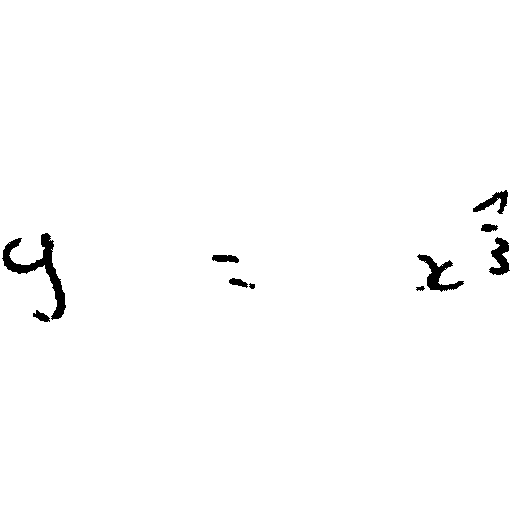 y = x^{1/3}